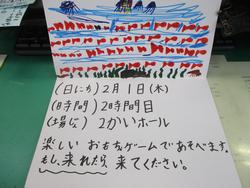 (日にち) 2月1日(木)
(時間) 2時間目
(場しょ) 2かいホール
楽しい おもちゃゲームであそべます。
もし、来れたら、来てください。